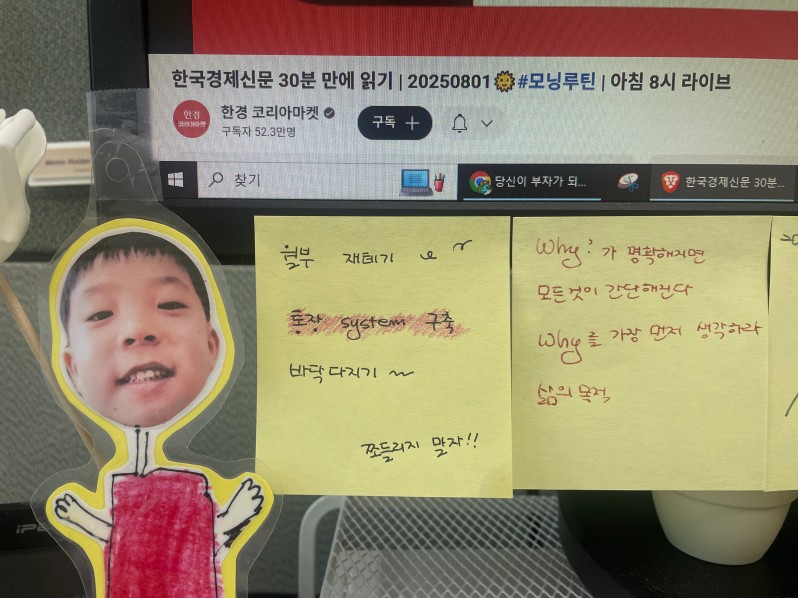 한국경제신문 30분 만에 읽기 | 20250801🌞#모닝루틴 | 아침 8시 라이브
한경
코리아마켓
한경 코리아마켓
구독자 52.3만명
구독
찾기
당신이 부자가 되...
한국경제신문 30분...
월부 재테기
통장 system 구축
바닥다지기 ~
쪼들리지 말자!!
Why?가 명확해지면
모든것이 간단해진다
Why를 가장 먼저 생각하라
삶의 목적